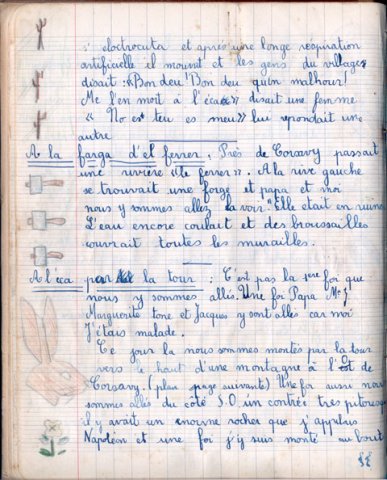 s' electrocuta et apres une longe respiration
artificielle il mourut et les gens du village
disait : «Bon deu! Bon deu quin malhour!
Me l'en mort à l'écac» disait une femme
« No es teu es meu» lui repondait une
autre
A la farga d'el ferrer, Près de Corsavy passait
une rivière «le ferrer». A la rive gauche
se trouvait une forge et papa et moi
nous y sommes allez la voir. Elle était en ruine
L'eau encore coulait et des broussailles
couvrait toutes les murailles.
A l'ea par la tour : C'est pas la 1ere foi que
nous y sommes allés. Une foi Papa Me
Marguerite tone et Jacques y sont allés car moi
J'étais malade.
Ce jour la nous sommes montés par la tour
vers le haut d'une montagne à l'est de
Corsavy. (plan page suivante) Une foi aussi nous
sommes allés du côté S.O. un contrée tres pitoresque
il y avait un enorme rocher que j'appelais
Napoléon et une foi j'y suis monté au bout